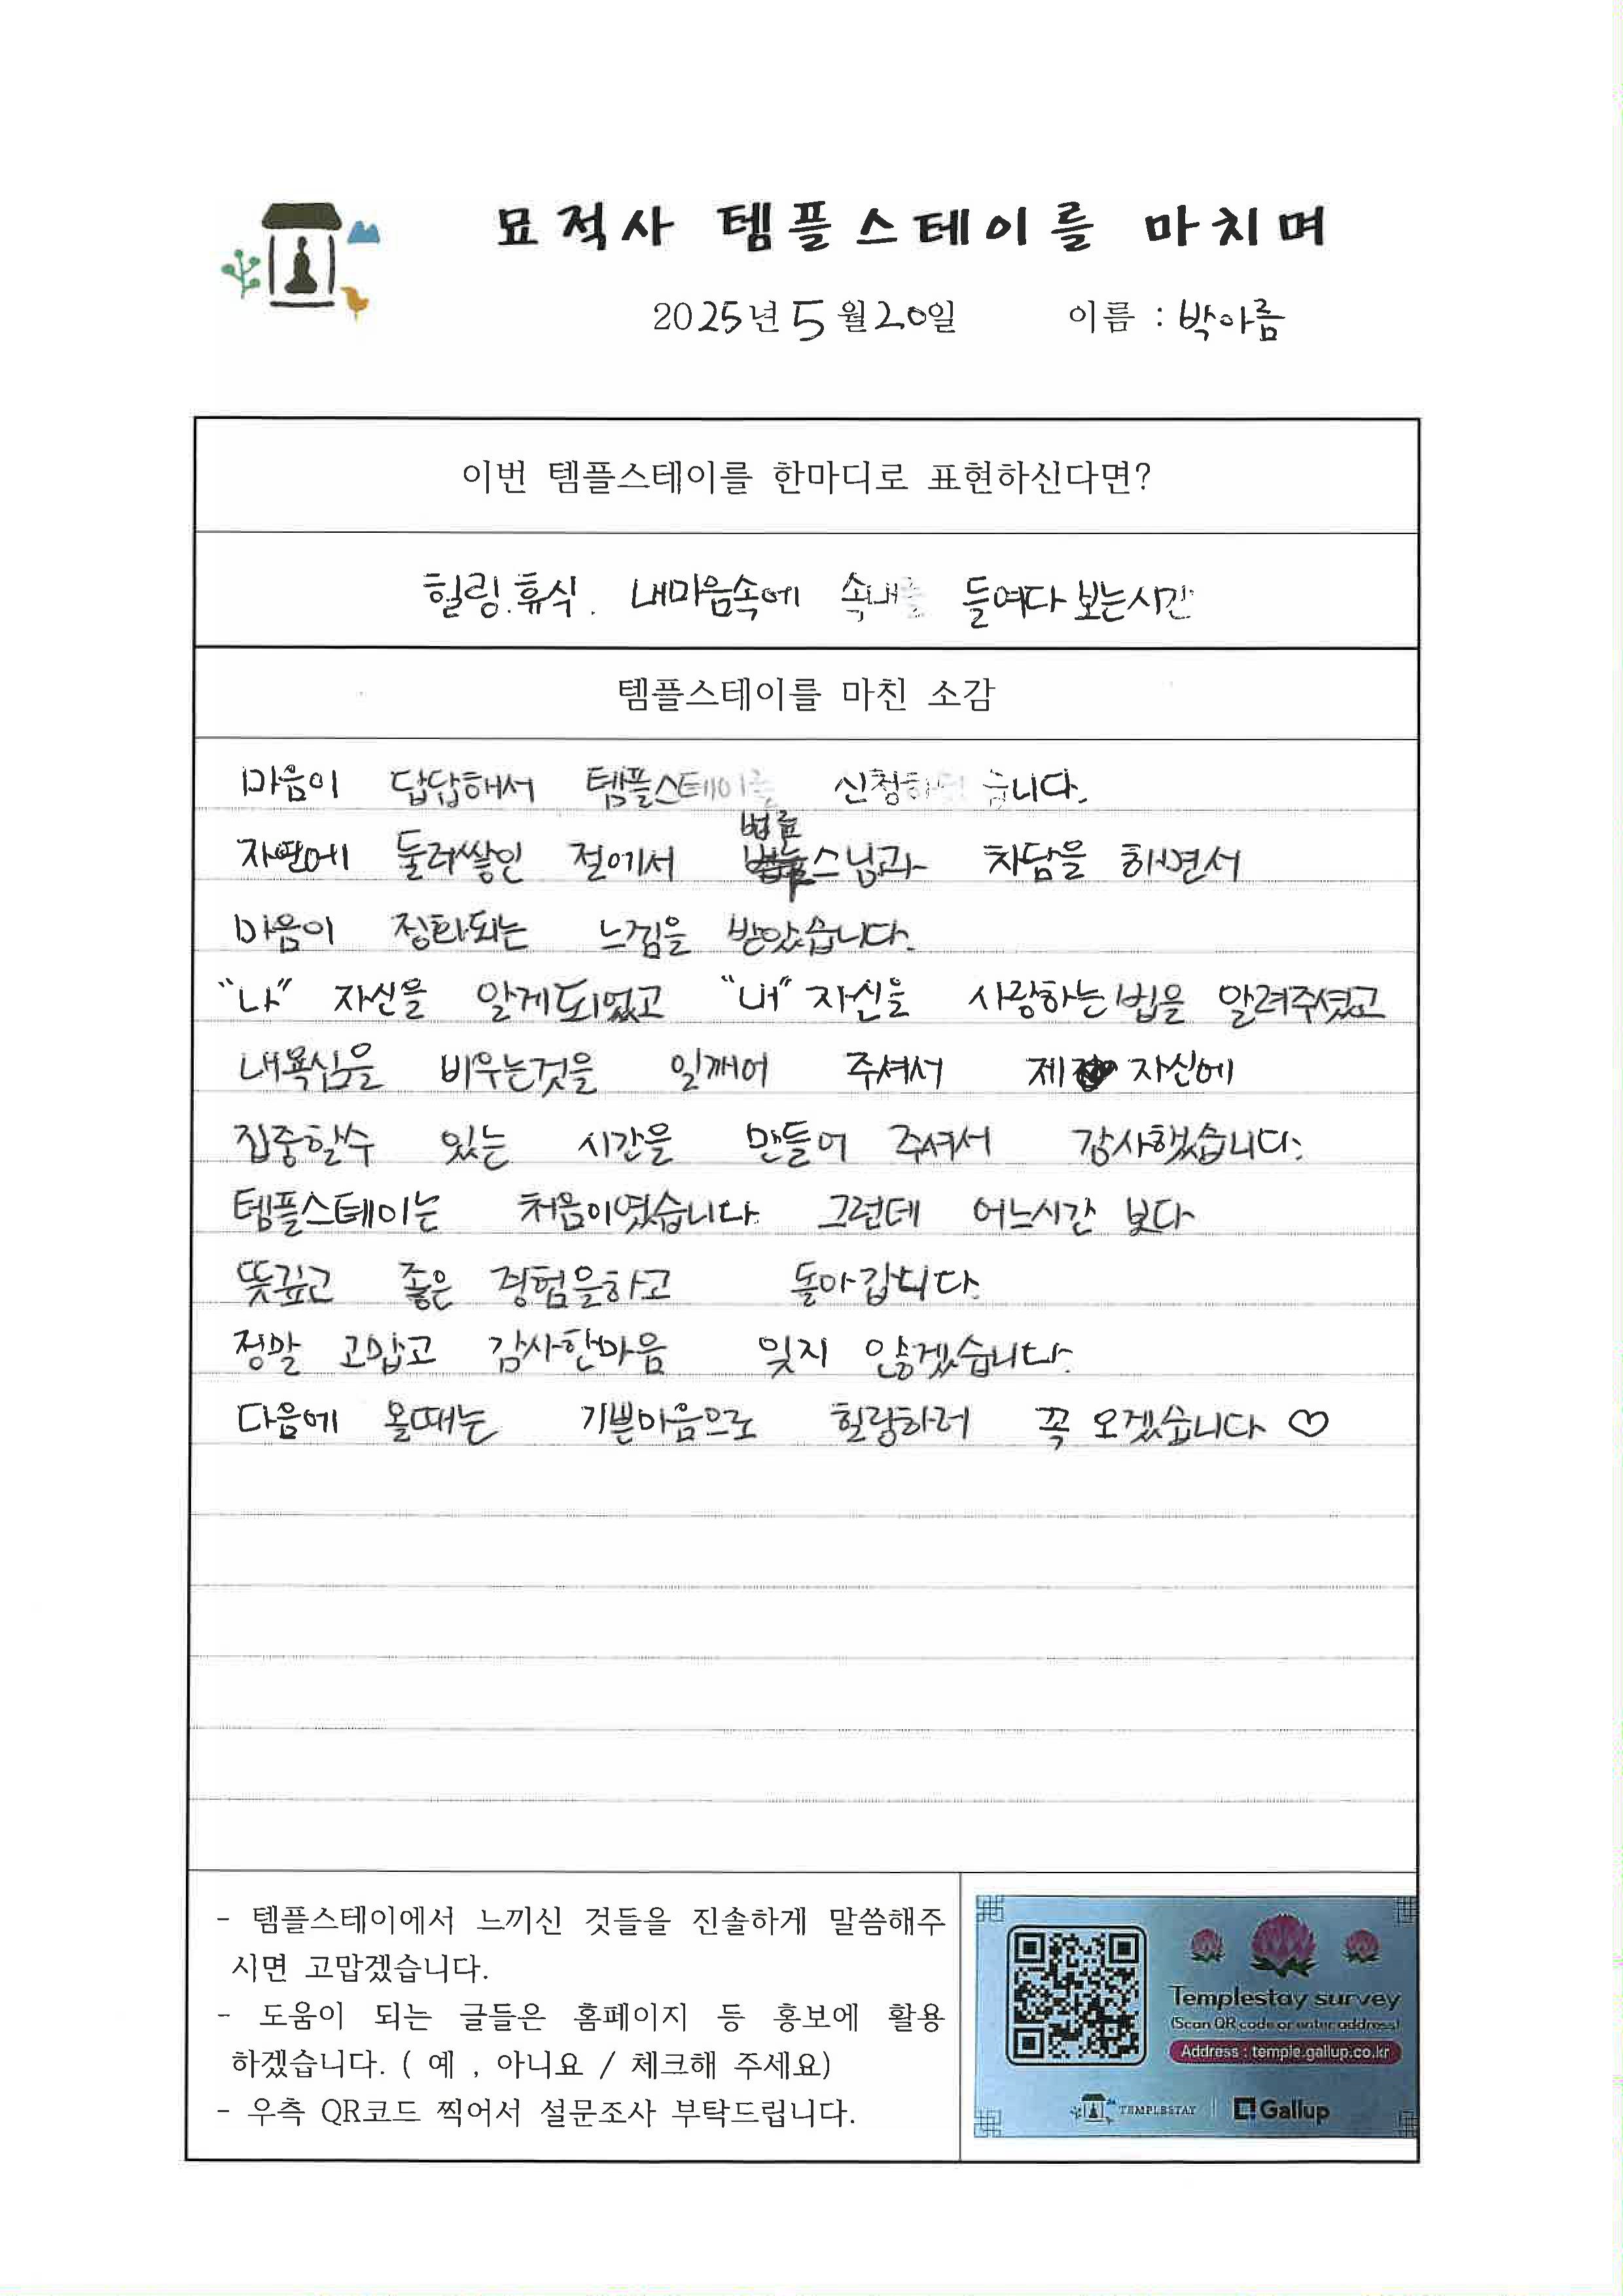 묘적사 템플스테이를 마치며
2025년 5월 20일 이름 : 박아름
이번 템플스테이를 한마디로 표현하신다면?
힐링.휴식. 내마음속에 속내를 들여다 보는시간
템플스테이를 마친 소감
마음이 답답해서 템플스테이를 신청하였습니다.
자연에 둘러쌓인 절에서 법률스님과 차담을 하면서
마음이 정화되는 느낌을 받았습니다.
"나" 자신을 알게되었고 "내" 자신을 사랑하는법을 알려주셨고
내욕심을 비우는것을 일깨어 주셔서 제 자신에
집중할수 있는 시간을 만들어 주셔서 감사했습니다.
템플스테이는 처음이였습니다 그런데 어느시간 보다
뜻깊고 좋은 경험을하고 돌아갑니다.
정말 고맙고 감사한마음 잊지 않겠습니다.
다음에 올때는 기쁜마음으로 힐링하러 꼭 오겠습니다 ♡
- 템플스테이에서 느끼신 것들을 진솔하게 말씀해주
시면 고맙겠습니다.
- 도움이 되는 글들은 홈페이지 등 홍보에 활용
하겠습니다. ( 예 , 아니요 / 체크해 주세요)
- 우측 QR코드 찍어서 설문조사 부탁드립니다.
Templestay survey
(Scan QR code or enter address)
Address : temple.gallup.co.kr
TEMPLESTAY Gallup